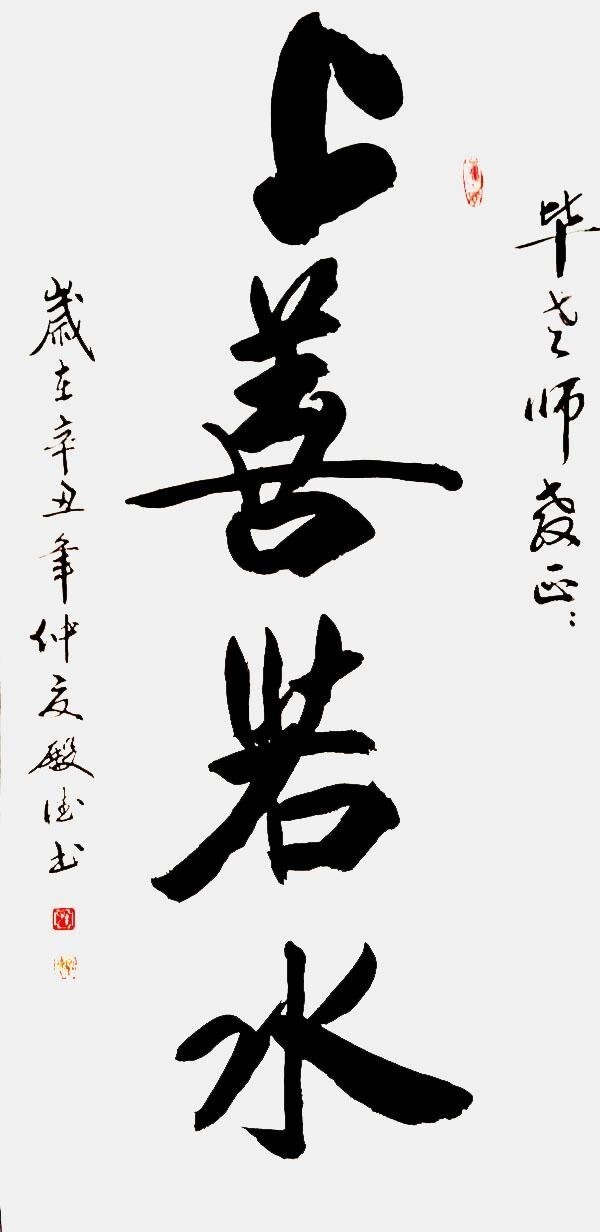 毕老师教正：
上善若水
歲在辛丑年仲夏殷德书